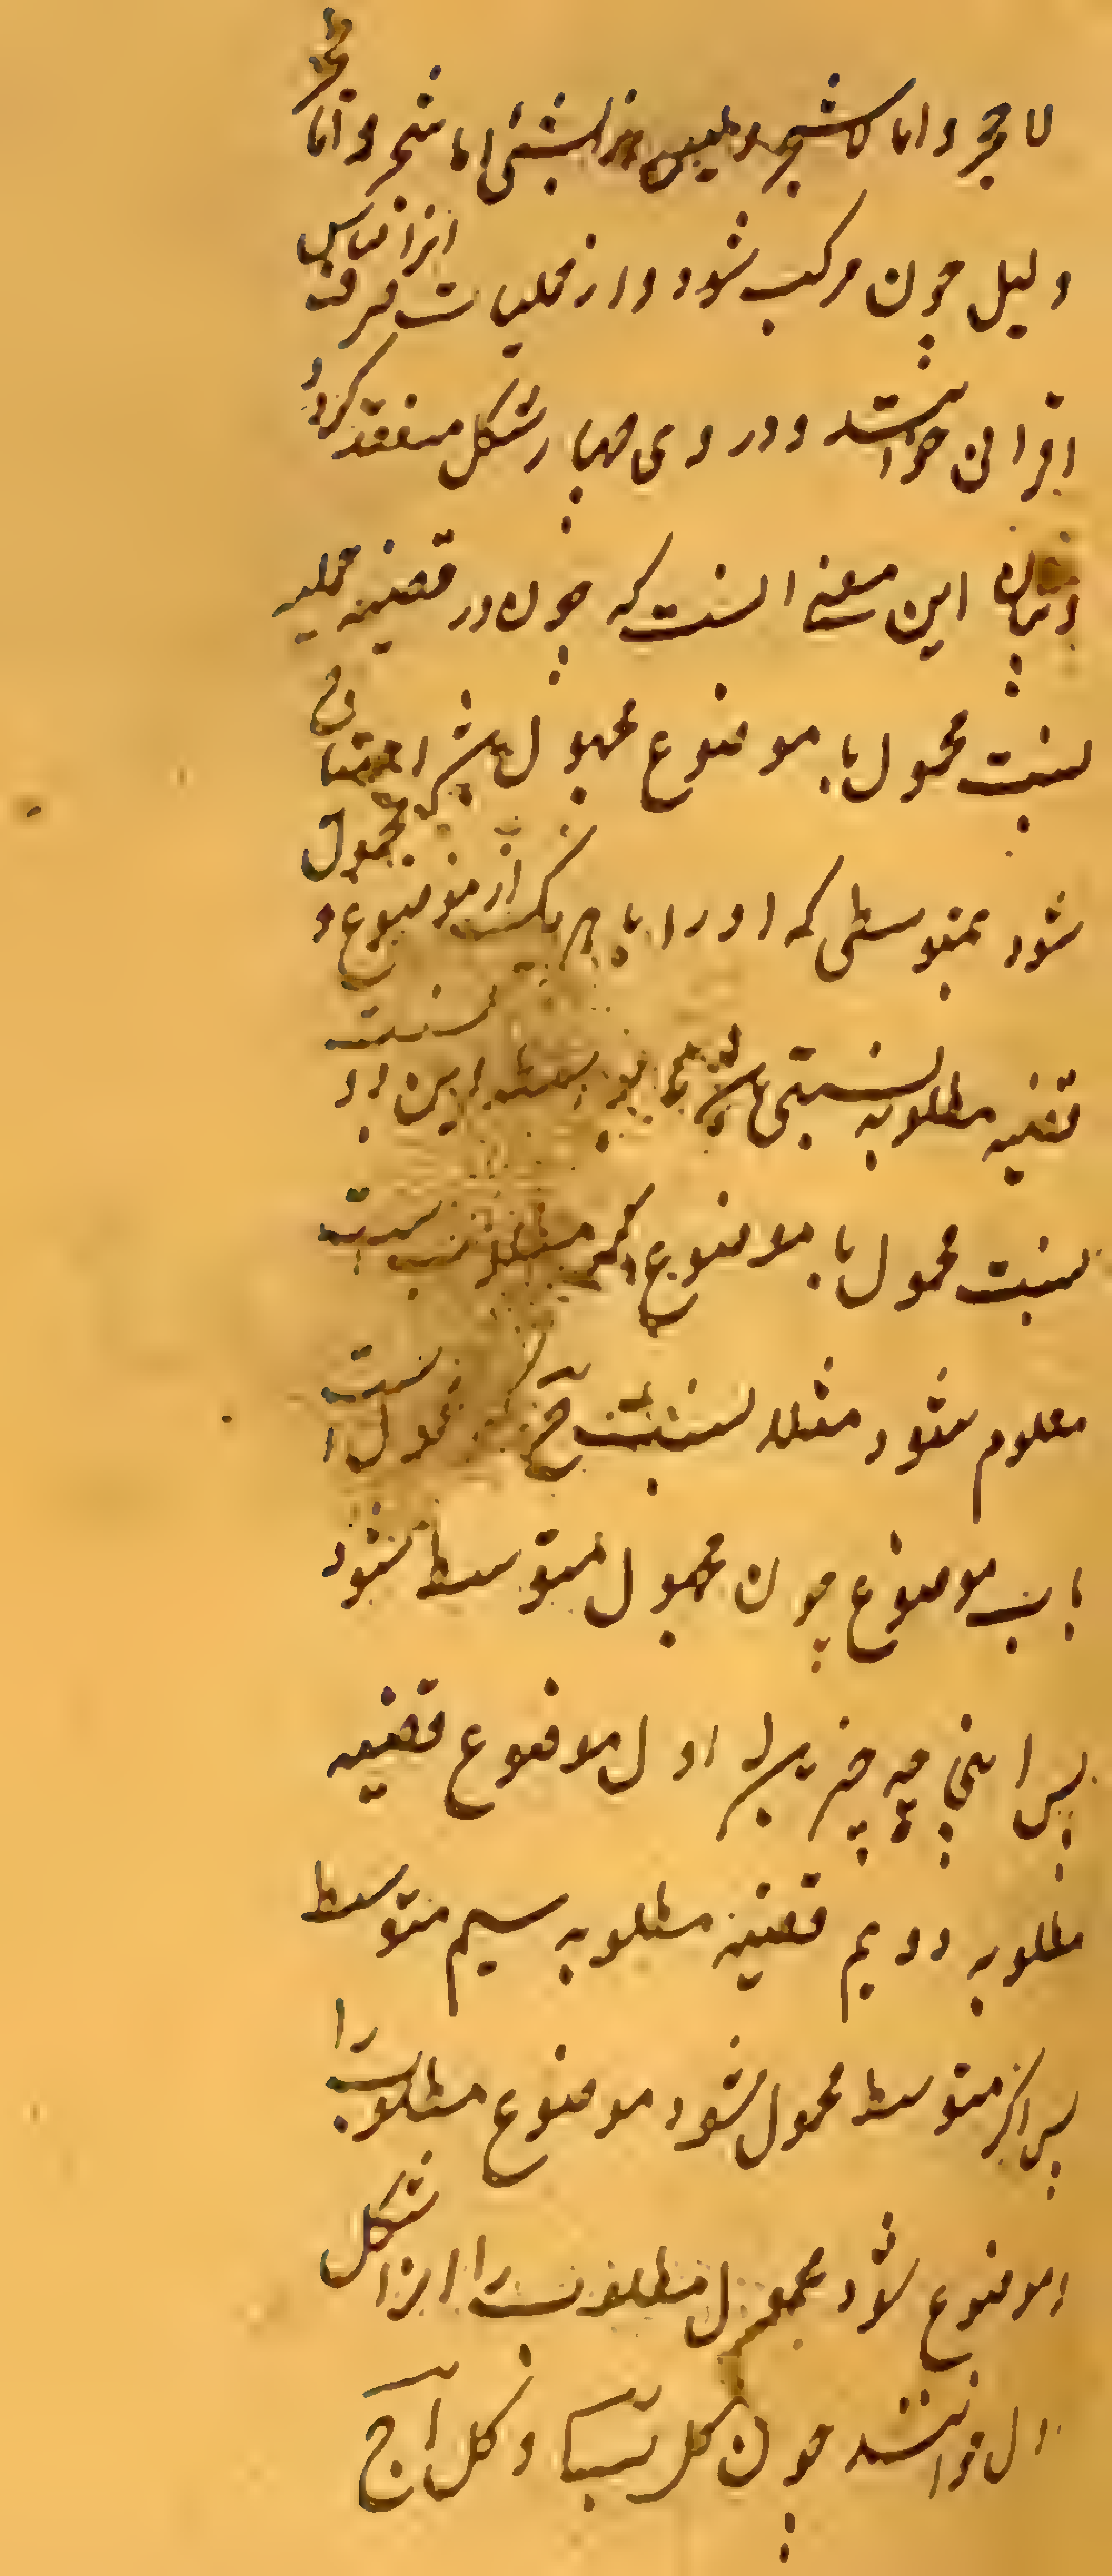 لا حجر و اما لا شجر و لیس هذا لشئ اما شجر و اما حجر
دلیل چون مرکب شود و از حملیات صرف انرا قیاس
اقترانی خوانند و در وی چهار شکل منعقد کردد
و بیان این معنی انست که چون در قضیه حملیه
نسبت محمول با موضوع مجهول باشد احتیاج
شود بمتوسطی که او را با هر یک از موضوع و محمول
قضیه مطلوبه نسبتی باشد تا بواسطه این دو نسبت
نسبت محمول با موضوع که مطلوبست
معلوم شود مثلا نسبت ج که محمول است
با ب موضوع چون مجهول متوسط شود
پس اینجا چه چیز باشد اول موضوع قضیه
مطلوبه دویم قضیه مطلوبه سیم متوسط
پس اکر متوسط محمول شود موضوع مطلوب را
و موضوع شود محمول مطلوب را انرا شکل
اول خوانند چون کل ب ا و کل ا ج